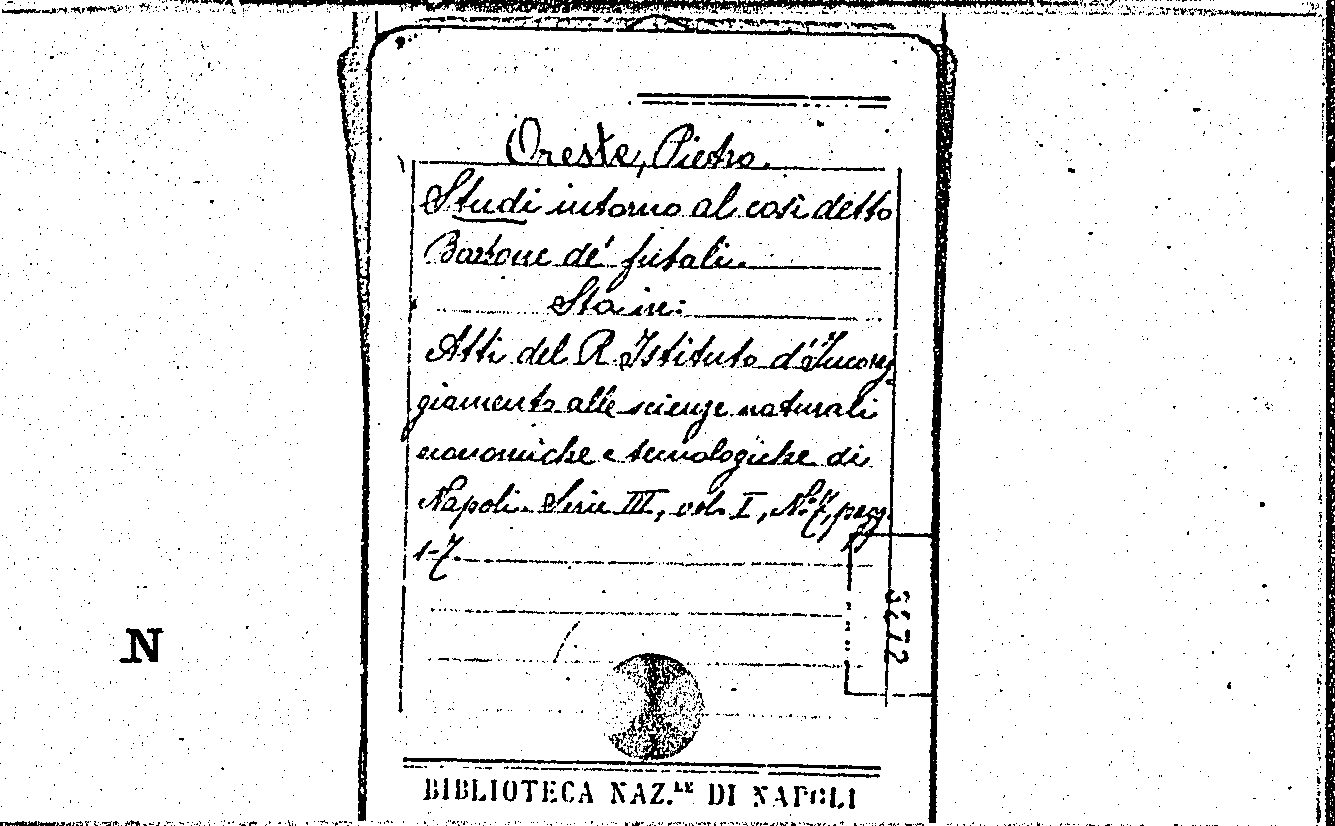 Oreste, Pietro.
Studi intorno al così detto
Barbone de' bufali.
Sta in:
Atti del R. Istituto d'Incorag-
giamento alle scienze naturali
economiche e tecnologiche di
Napoli. Serie III, vol. I, N.° 7, pagg.
1-7.
3672
N
BIBLIOTECA NAZ.LE DI NAPOLI